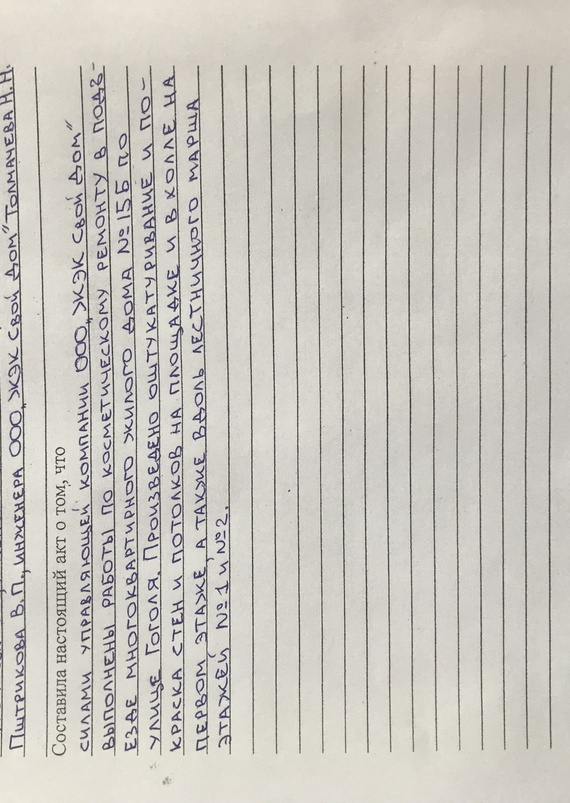 Пштрикова В.П., инженера ООО „ЖЭК Свой Дом" Толмачева Н.Н.
Составила настоящий акт о том, что
силами управляющей компании ООО „ЖЭК Свой Дом"
выполнены работы по косметическому ремонту в подъ-
езде многоквартирного жилого дома №15Б по
улице Гоголя. Произведено оштукатуривание и по-
краска стен и потолков на площадке и в холле на
первом этаже, а также вдоль лестничного марша
этажей №1 и №2.